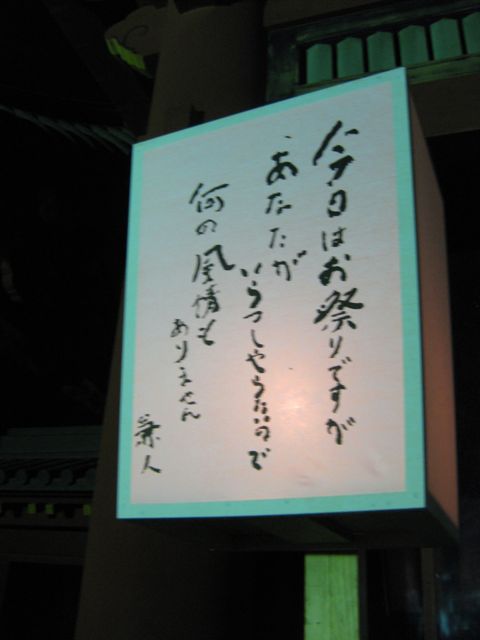 今日はお祭りですが
あなたが
いらっしやらないので
何の風情も
ありません
兼人